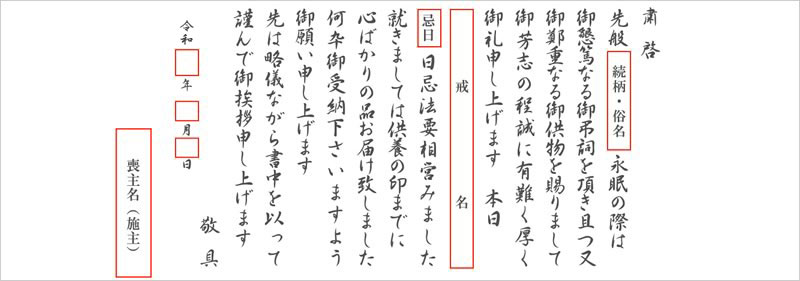 粛啓
先般 続柄・俗名 永眠の際は
御懇篤なる御弔詞を頂き且つ又
御鄭重なる御供物を賜りまして
御芳志の程誠に有難く厚く
御礼申し上げます 本日
戒名
忌日 日忌法要相営みました
就きましては供養の印までに
心ばかりの品お届け致しました
何卒御受納下さいますよう
御願い申し上げます
先は略儀ながら書中を以って
謹んで御挨拶申し上げます
敬具
令和 年 月 日
喪主名（施主）